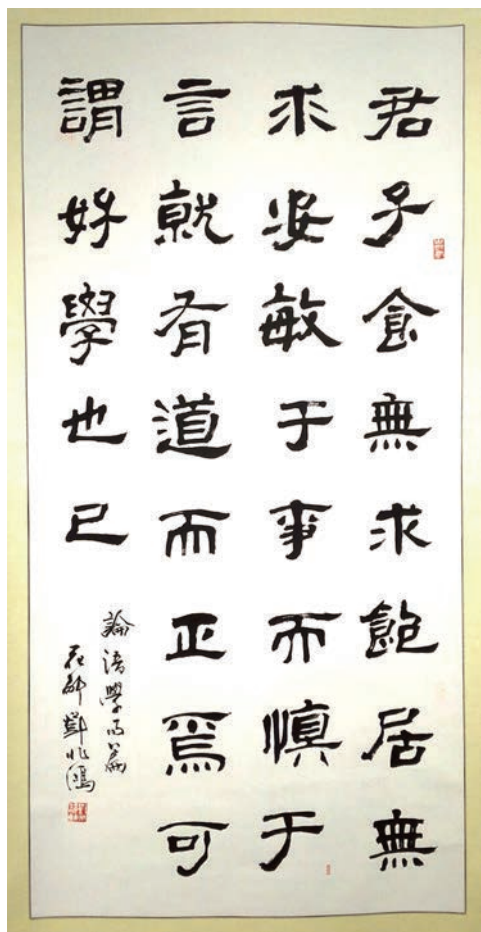 君子食無求飽居無
求安敏于事而慎于
言就有道而正焉可
謂好學也已
論語學而篇
花都鄧兆鴻